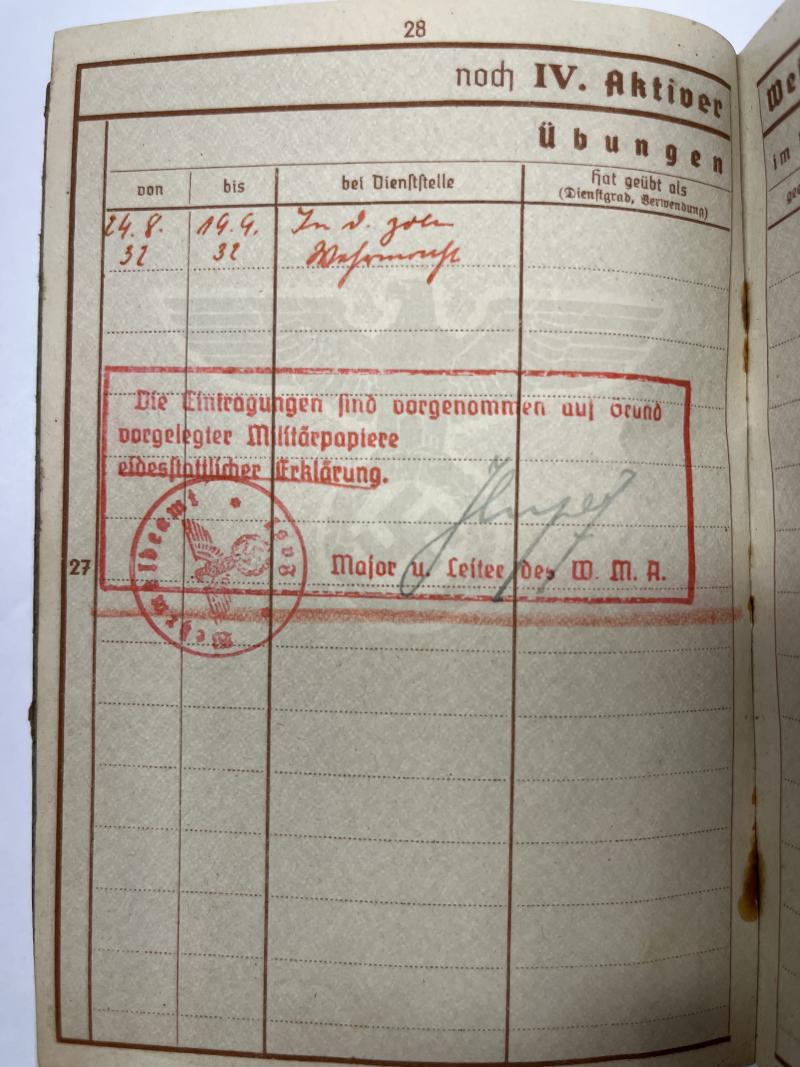 28
noch IV. Aktiver
We
Übungen
im
von
bis
bei Dienststelle
Hat geübt als
(Dienstgrad, Verwendung)
24. 8. 19. 9. In d.
32 32 Wehrmacht
Die Eintragungen sind vorgenommen auf Grund
vorgelegter Militärpapiere
eidesstattlicher Erklärung.
27
Major u. Leiter des W. M. A.
Wehrmeldeamt